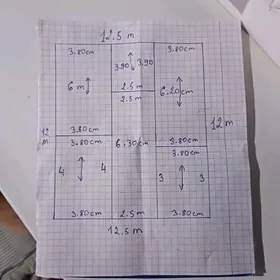 12.5 m
3.80cm 3.80cm
3.90 3.90
6 m 2.5 m 6.20cm
2.5 m
12 m 3.80cm 12 m
3.80cm 6.30cm 3.80cm
3.80cm
4 4 3 3
3.80cm 2.5 m 3.80cm
12.5 m